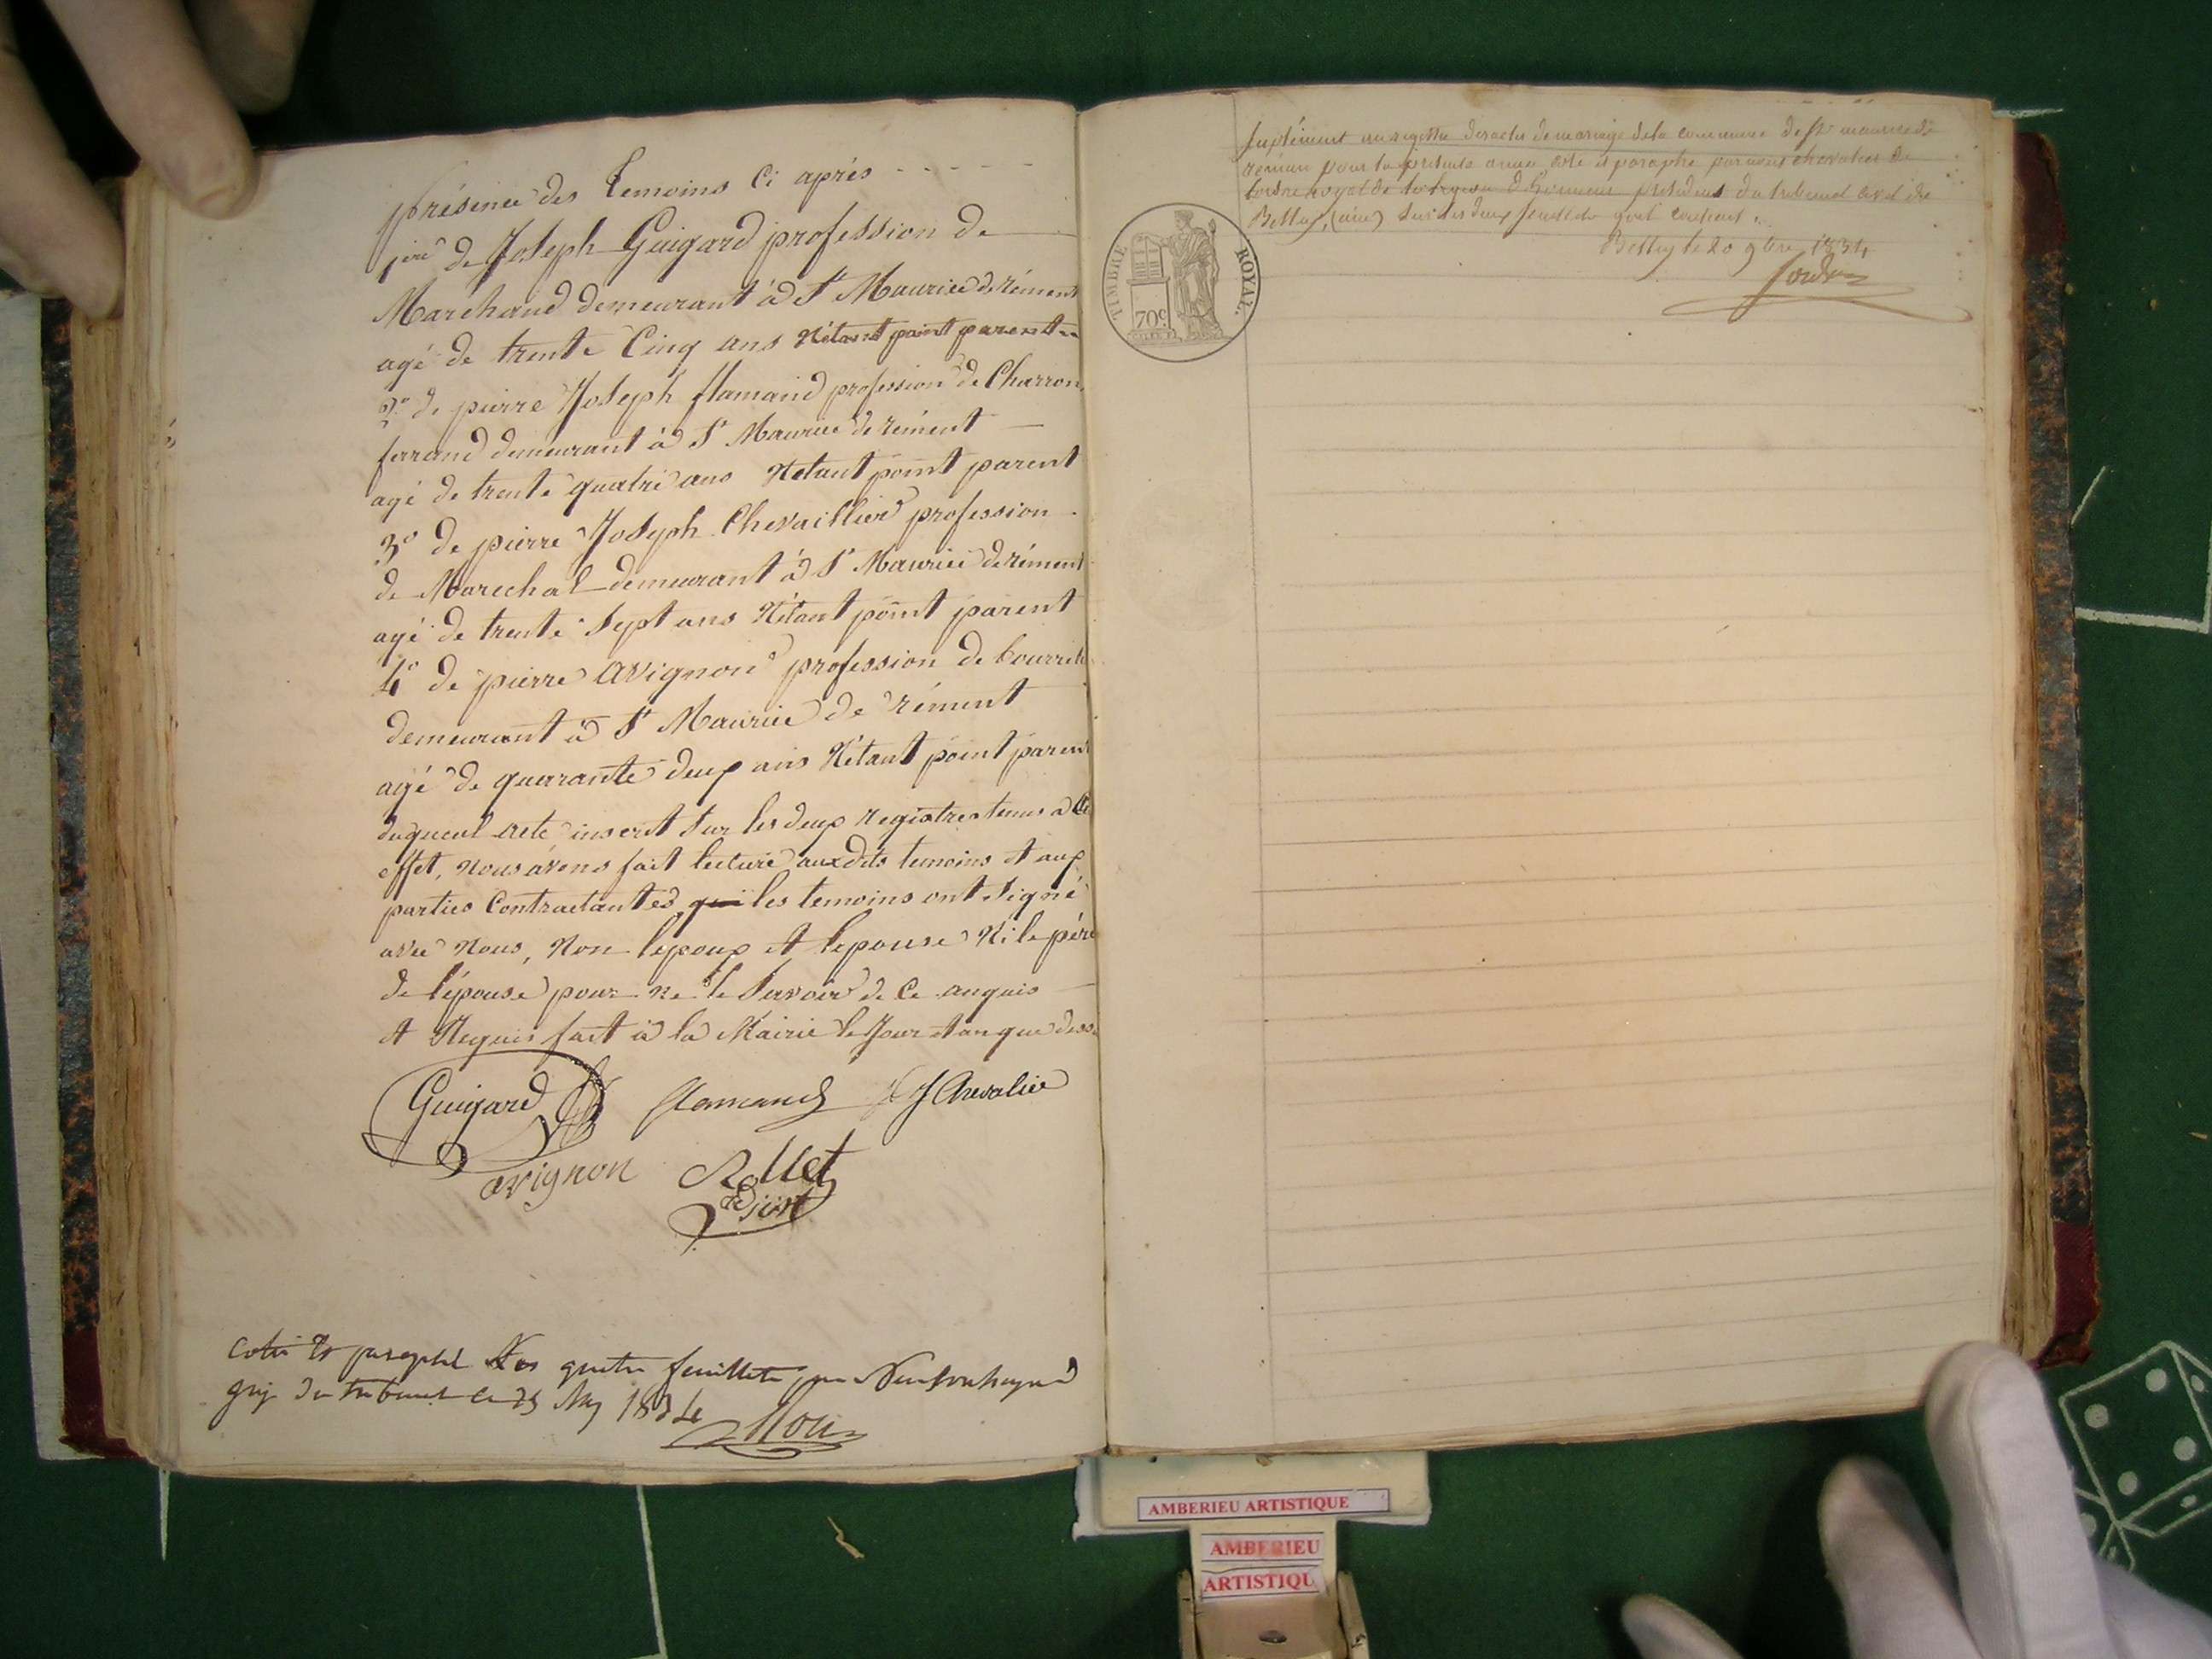 présence des temoins ci aprés - - - - -
1ere de Joseph Guigard profession de
Marchand demeurant à St Maurice de rément
agé de trente Cinq ans N'étant point parent
2o de pierre Joseph flamand profession de Charron
demeurant à St Maurice de rément
agé de trente quatre ans Netant point parent
3o de pierre Joseph Chevaillier profession
de Marechal demeurant à St Maurice de rément
agé de trente Sept ans N'étant point parent
4o de pierre Avignon profession de
demeurant à St Maurice de rément
agé de quarante deux ans N'étant point parent
duqueul acte inscrit Sur les deux Registres tenus a Cet
effet, Nous avons fait lecture auxdits temoins et aux
parties Contractantes, qui les temoins ont Signé
avec Nous, Non lepoux et lepouse Ni le père
de l'épouse pour ne le Savoir de Ce anquis
et Requis fait à la Mairie le Jour et an que dessu
Guigard flamand J Chevalier
avignon Rollet
adjoint
Coté et paraphé Les quatre feuillets par
du tribunal Ce 25 1834
Supplément au registre des actes de mariage de la commune de St maurice de
remian pour la présente année, coté et paraphé par nous chevalier de
lordre royal de la légion d'honneur président du tribunal civil de
Belley, (ain) Sur les deux feuillets quil contient.
Belley le 20 9bre 1834
TIMBRE ROYAL.
70c
AMBERIEU ARTISTIQUE
AMBERIEU
ARTISTIQU